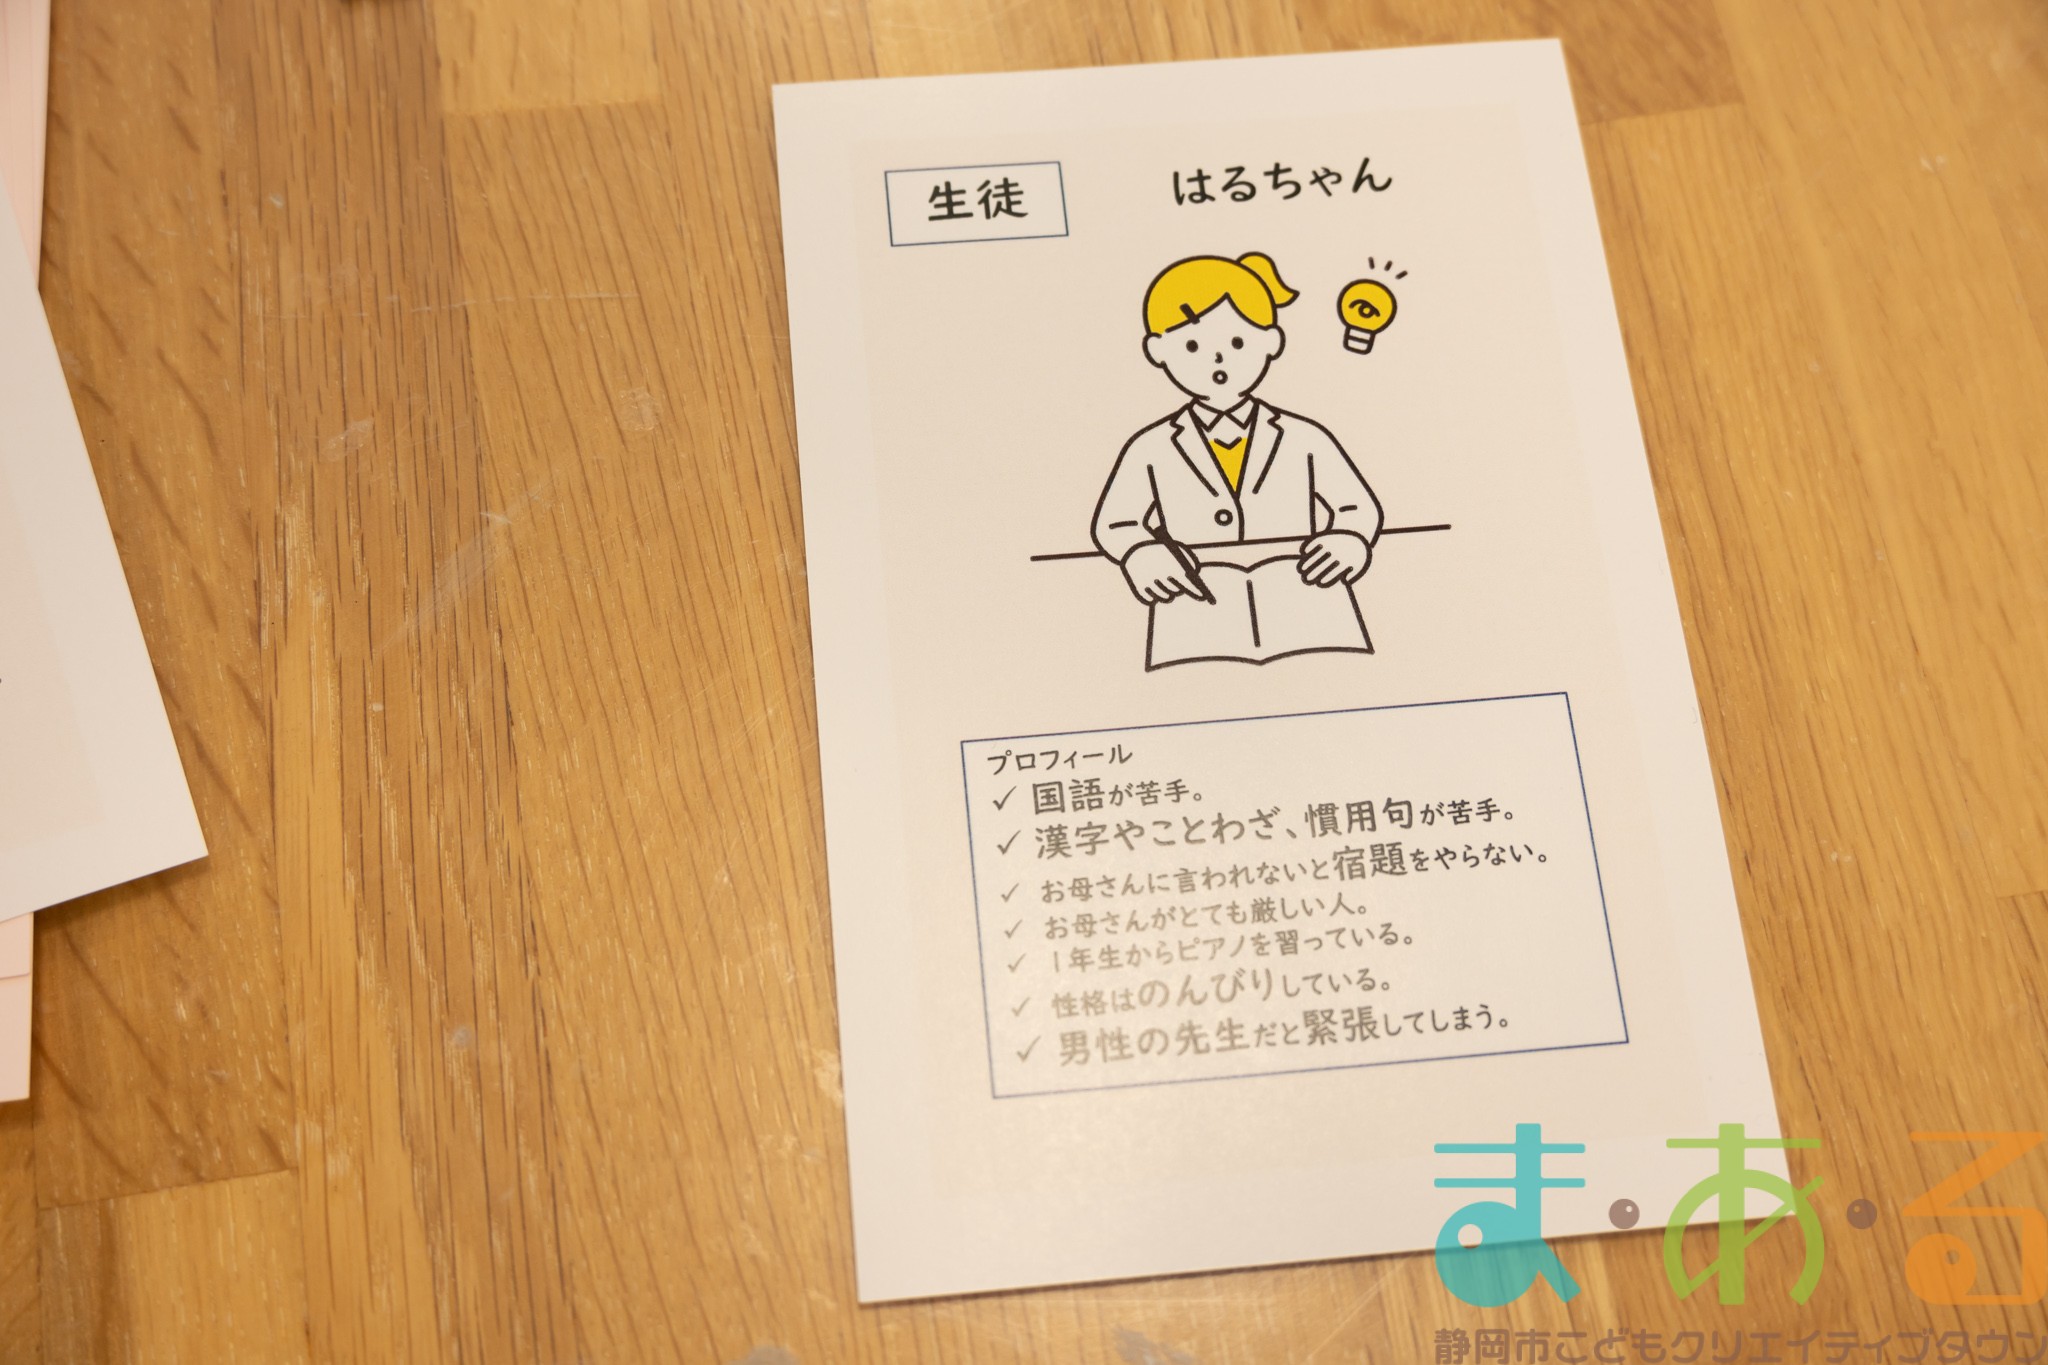 生徒
はるちゃん
プロフィール
✓ 国語が苦手。
✓ 漢字やことわざ、慣用句が苦手。
✓ お母さんに言われないと宿題をやらない。
✓ お母さんがとても厳しい人。
✓ 1年生からピアノを習っている。
✓ 性格はのんびりしている。
✓ 男性の先生だと緊張してしまう。
ま・あ・る
静岡市こどもクリエイティブタウン